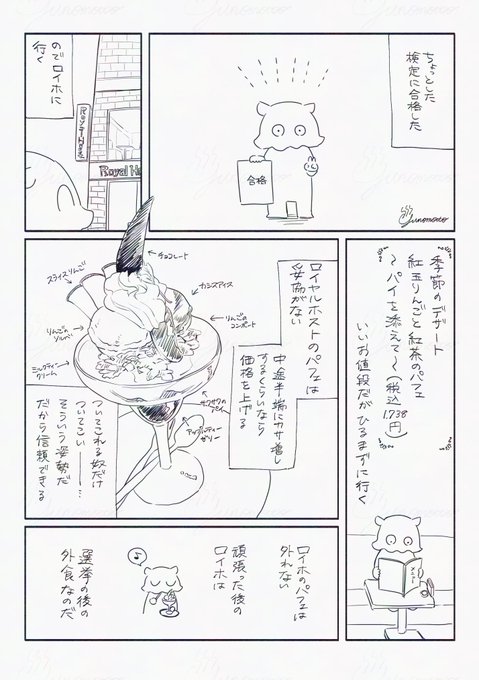 ちょっとした
検定に合格した
合格
Junomoto
のでロイホに
行く
Royal Host
Royal Ho
季節のデザート
紅玉りんごと紅茶のパフェ
～パイを添えて～(税込1,738円)
いいお値段だがひるまずに行く
メニュー
ロイヤルホストのパフェは
妥協がない
中途半端にカサ増し
するくらいなら
価格を上げる
チョコレート
カシスアイス
りんごの
コンポート
スライスりんご
りんごの
ソルベ
ミルクティー
クリーム
サクサクの
パイ
アップルティー
ゼリー
ついてこれる奴だけ
ついてこい———…
そういう姿勢だ
だから信頼できる
ロイホのパフェは
外れない
頑張った後の
ロイホは
♪
選挙の後の
外食なのだ